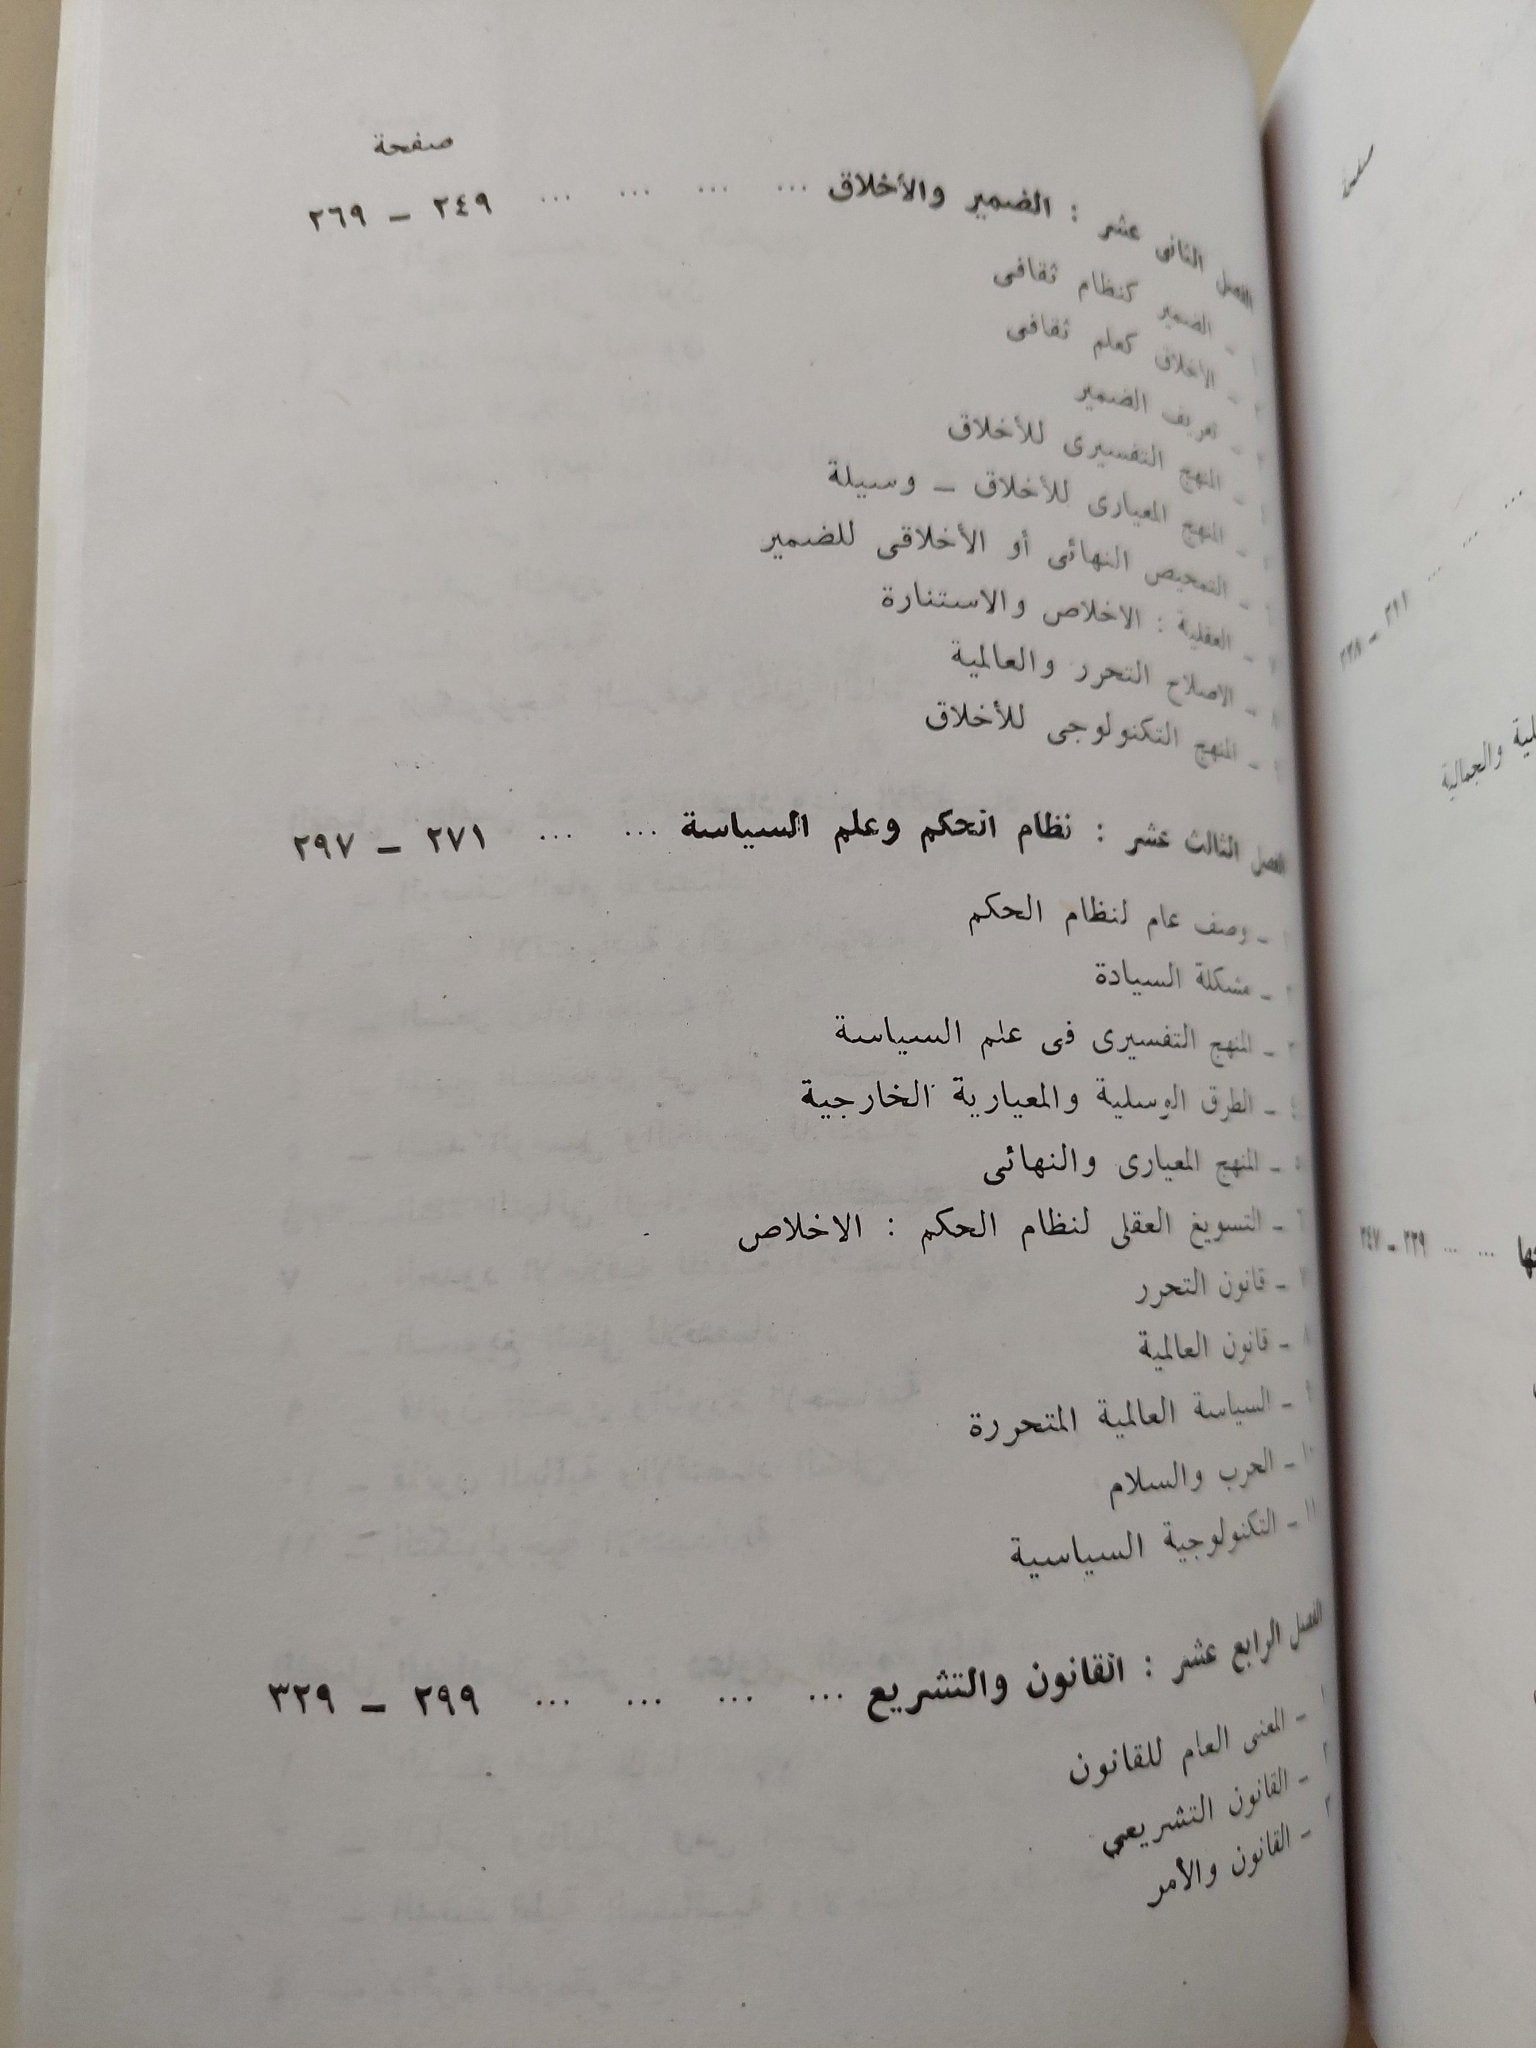 صفحة
الفصل الثانى عشر : الضمير والأخلاق ... ... ... ... ٢٤٩ – ٢٦٩
١ – الضمير كنظام ثقافى
٢ – الأخلاق كعلم ثقافى
٣ – تعريف الضمير
٤ – المنهج التفسيرى للأخلاق
٥ – المنهج المعيارى للأخلاق – وسيلة
٦ – التمحيص النهائى أو الأخلاقى للضمير
٧ – العقلية : الاخلاص والاستنارة
٨ – الاصلاح التحرر والعالمية
٩ – المنهج التكنولوجى للأخلاق
الفصل الثالث عشر : نظام الحكم وعلم السياسة ... ... ... ٢٧١ – ٢٩٧
١ – وصف عام لنظام الحكم
٢ – مشكلة السيادة
٣ – المنهج التفسيرى فى علم السياسة
٤ – الطرق الوسلية والمعيارية الخارجية
٥ – المنهج المعيارى والنهائى
٦ – التسويغ العقلى لنظام الحكم : الاخلاص
٧ – قانون التحرر
٨ – قانون العالمية
٩ – السياسة العالمية المتحررة
١٠ – الحرب والسلام
١١ – التكنولوجية السياسية
الفصل الرابع عشر : القانون والتشريع ... ... ... ... ٢٩٩ – ٣٢٩
١ – المعنى العام للقانون
٢ – القانون التشريعى
٣ – القانون والأمر
صفحة
... ... ... ٢١١ – ٢٢٨
والجمالية
... ... ٢٢٩ – ٢٤٧